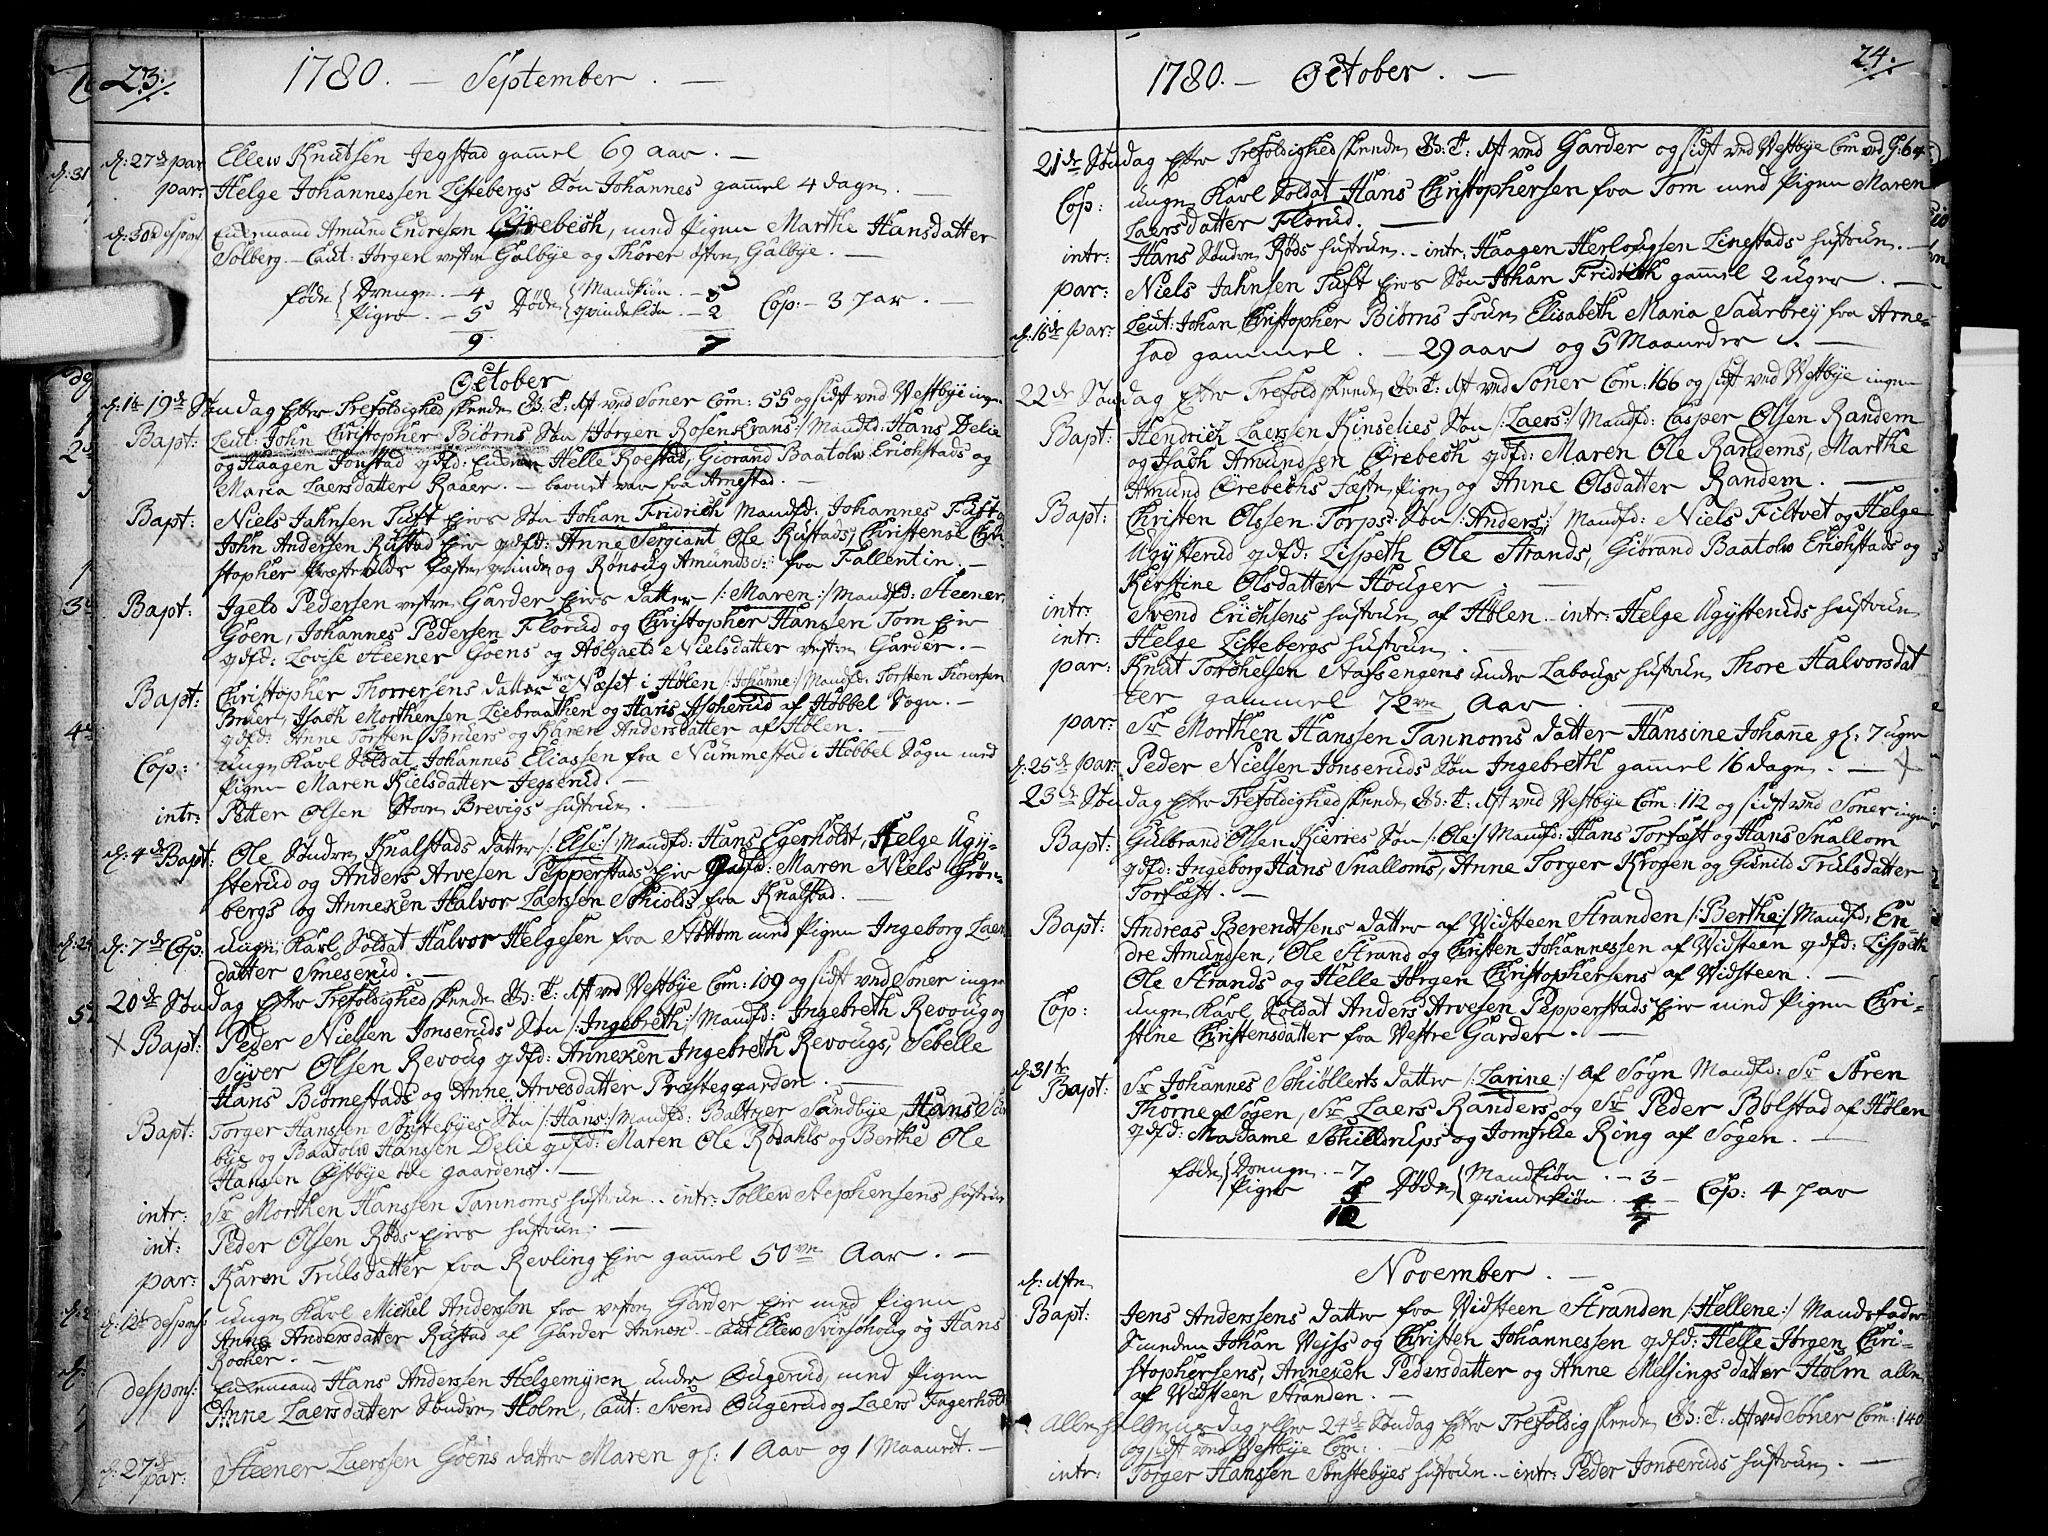 23.
1780. — September. —
d: 27de par: Ellew Knutsen Jegstad gammel 69 aar. —
par: Helge Johannessen Listebergs Søn Johannes gammel 4 dage. —
d: 30te despons: Enkemand Amund Endresen Ørebech, med Pigen Marthe Hansdatter
Solberg. — Caut: Jørgen vestre Galbye og Thorer østre Galbye. —
føde { Drenge. — 4 Døde { Mandkiøn. — 5 Cop: — 3 par. —
Piger. — 5 qvindekiøn — 2
9 7
October
d: 1te 19de Søndag efter Trefoldighed skende Gs: T: Aft ved Soner Com: 55 og sidst ved Westbye ingen
Bapt: Leut: John Christopher Biørns Søn /: Jørgen Rosenkrans :/ Mandfd: Hans Delie
og Haagen Fonstad qvdfd: Helle Roestad, Giørand Baatolw Erichstads og
Maria Laersdatter Raaer. — barnet var fra Arnestad. —
Bapt: Niels Jahnsen Tuft Eies Søn Johan Fridrich Mandfd: Johannes Tuft
John Andersen Rustad Eie qvdfd: Anne Sergiant Ole Rustads, Christense Chri-
stopher og Rønoug Amundsd: fra Fallentin. —
Bapt: Pedersen vestre Garder Eies datter /: Maren :/ Mandfd: Steener
Goen, Johannes Pedersen Florud og Christopher Hanssen Tom Eie
qvdfd: Lovise Steener Goens og Nielsdatter vestre Garder. —
Bapt: Christopher Thorrersens datter fra Næset i Hølen /: Johanne :/ Mandfd: Torsten Thorersen
Bruer, Isach Morthensen Liebraathen og Hans Ascherud af Høbbel Sogn. —
qvdfd: Anne Torsten Bruers og Karen Andersdatter af Hølen. —
Cop: unge Karl Soldat Johannes Eliassen fra Nummestad i Høbbel Sogn med
Pigen Maren Kielsdatter Jegserud. —
intr: Petter Olsen Store Brevigs hustrue. —
d: 4de Bapt: Ole Søndre Knalstads datter /: Else :/ Mandfd: Hans Egerholdt, Helge Ugy-
sterud og Anders Arvesen Pepperstads Eie qvdfd: Maren Niels Grøn-
bergs og Anneken Halvor Laerssen Schiolds fra Knalstad. —
d: 7de Cop: unge Karl Soldat Halvor Helgesen fra Støttom med Pigen Ingeborg Laers
datter Smeserud. —
20de Søndag efter Trefoldighed skende Gs: T: Aft ved Westbye Com: 109 og sidst ved Soner ingen
+ Bapt: Peder Nielsen Jonseruds Søn /: Ingebreth :/ Mandfd: Ingebreth Revoug og
Syver Olsen Revoug qvdfd: Anneken Ingebreth Revougs, Sebelle
Hans Biørnestads og Anne Arvesdatter Præsteggaarden. —
Bapt: Torger Hanssen Sønstebyes Søn /: Hans :/ Mandfd: Baltzer Sandbye, Hans Sønste-
bye og Baatolw Hanssen Delie qvdfd: Maren Ole Rødahls og Berthe Ole
Hanssen Østbye øde gaardens. —
intr: Sr Morthen Hanssen Tannoms hustrue. — intr: Tollew Stephensens hustrue
int: Peder Olsen Røds Eies hustrue. —
par: Karen Trulsdatter fra Revling Eie gamel 50ve Aar. —
d: 12te despons: unge Karl Michel Anderssen fra vestre Garder Eie med Pigen
Anne Andersdatter Rustad af Garder Annex. — Caut: Ellew Svirshoug og Hans
Rocher. —
despons: Enkemand Hans Anderssen Helgemyren under Ougerud, med Pigen
Anne Laersdatter Søndre Holm, Caut: Svend Ougerud og Laers Fagerholt
d: 27de par: Steener Laerssen Goens datter Maren gl: 1 Aar og 1 Maanedt. —
1780. — October. — 24.
21de Søndag efter Trefoldighed skende Gs: T: Aft ved Garder og sidst ved Westbye Com ved G: 64
Cop: unge Karl Soldat Hans Christophersen fra Tom med Pigen Maren
Laersdatter Florud. —
intr: Hans Søndre Røds hustrue. — intr: Haagen Herlougsen Linestads hustrue. —
par: Niels Jahnsen Tuft Eies Søn Johan Fridrich gammel 2 uger. —
d: 16de par: Leut: Johan Christopher Biørns Frue Elisabeth Maria Saurbrey fra Arne-
stad gammel. — 29 aar og 5 Maaneder. —
22de Søndag efter Trefold: skende Gs: T: Aft ved Soner Com: 166 og sidst ved Westbye ingen
Bapt: Hendrich Laerssen Kinselies Søn /: Laers :/ Mandfd: Casper Olsen Randem
og Isach Amundsen Ørebech qvdfd: Maren Ole Randems, Marthe
Amund Ørebechs Fæste Pige og Anne Olsdatter Randem. —
Bapt: Christen Olssen Torps Søn /: Anders :/ Mandfd: Niels Filtvet og Helge
Ugysterud qvdfd: Lispeth Ole Strands, Giørand Baatolw Erichstads og
Kirstine Olsdatter Houger. —
intr: Svend Erichsens hustrue af Hølen. — intr: Helge Ugysteruds hustrue
intr: Helge Listebergs hustrue. —
par: Knut Torchelsen Stafsengens under Labougs hustrue Thore Halvorsdat
ter gammel 72ve Aar. —
par: Sr Morthen Hanssen Tannoms datter Hansine Johanne gl: 7 uger
d: 25de par: Peder Nielsen Jonseruds Søn Ingebreth gammel 16 dage. — +
23de Søndag efter Trefoldighed skende Gs: T: Aft ved Westbye Com: 112 og sidst ved Soner ingen
Bapt: Gulbrand Olsen Kierres Søn /: Ole :/ Mandfd: Hans Torfæst og Hans Snallom
qvdfd: Ingeborg Hans Snalloms, Anne Torger Krogen og Gunild Trulsdatter
Torfæst. —
Bapt: Andreas Berendtsens datter af Widsteen Stranden /: Berthe :/ Mandfd: En-
dre Amundsen, Ole Strand og Christen Johannessen af Widsteen qvdfd: Lispeth
Ole Strands og Helle Jørgen Christophersens af Widsteen. —
Cop: unge Karl Soldat Anders Arvesen Pepperstads Eie med Pigen Chri-
stine Christensdatter fra Vestre Garder. —
d: 31te
Bapt: Sr Johannes Schiøllerts datter /: Larine :/ af Sogn Mandfd: Sr Søren
Thorne Sogen, Sr Laers Randers og Sr Peder Bolstad af Hølen
qvdfd: Madame Schilderups og Jomfrue Ring af Sogen. —
føde { Drenge — 7 Døde { Mandkiøn. — 3 — Cop: 4 par
Piger 5 qvindekiøn. — 4
12 7
November. —
d: 1ste
Bapt: Jens Anderssens datter fra Widsteen Stranden /: Hellene :/ Mandsfadder
Smeden Johan Weiss og Christen Johannessen qvdfd: Helle Jørgen Chri-
stophersens, Annexen Pedersdatter og Anne Melsings datter Holm alle
af Widsteen Stranden. —
Alle helgenes dag eller 24de Søndag efter Trefoldig skende Gs: T: Aft ved Soner Com: 140
og sidst ved Westbye Com: —
intr: Torger Hanssen Sønstebyes hustrue. — intr: Peder Jonseruds hustrue. —